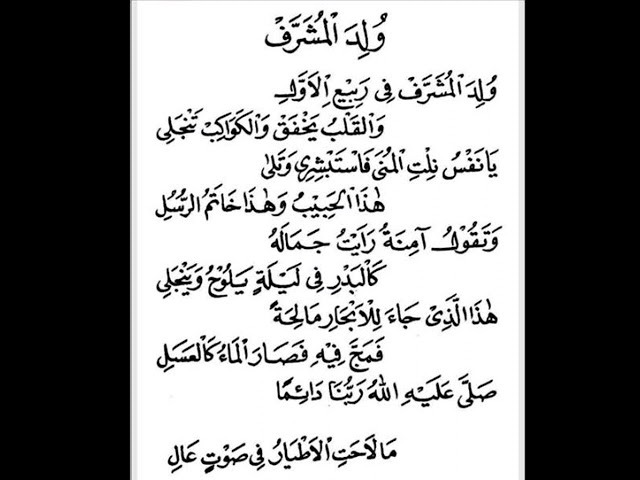 وُلِدَ الْمُشَرَّفْ
وُلِدَ الْمُشَرَّفْ فِى رَبِيْعِ الْاَوَّلِ
وَالْقَلْبُ يَخْفَقْ وَالْكَوَاكِبْ تَنْجَلِى
يَانَفْسُ نِلْتِ الْمُنَى فَاسْتَبْشِرِى وَتَلَى
هٰذَا الْحَبِيْبُ وَهٰذَا خَاتَمُ الرُّسُلِ
وَتَقُوْلُ آمِنَةُ رَاَيْتُ جَمَالَهُ
كَالْبَدْرِ فِى لَيْلَةٍ يَلُوْحُ وَيَنْجَلِى
هٰذَا الَّذِىْ جَاءَ لِلْاَبْحَارِ مَالِحَةً
فَمَجَّ فِيْهِ فَصَارَ الْمَاءُ كَالْعَسَلِ
صَلَّى عَلَيْهِ اللهُ رَبُّنَا دَائِمًا
مَالَاحَتِ الْاَطْيَارُ فِى صَوْتٍ عَالِ